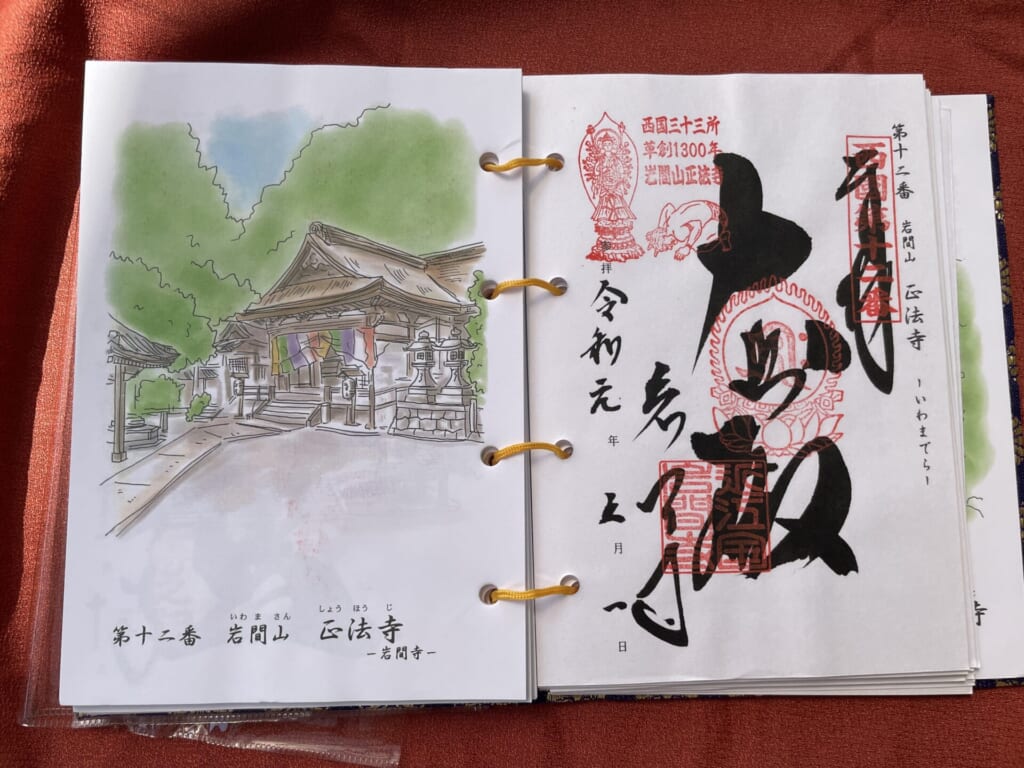 いわ ま さん しょう ほう じ
第十二番 岩間山 正法寺
ー岩間寺ー
第十二番 岩間山 正法寺 ーいわまでらー
西国第十二番
大悲殿
岩間寺
西国三十三所
草創1300年
岩間山正法寺
参拝 令和元年 月 一日